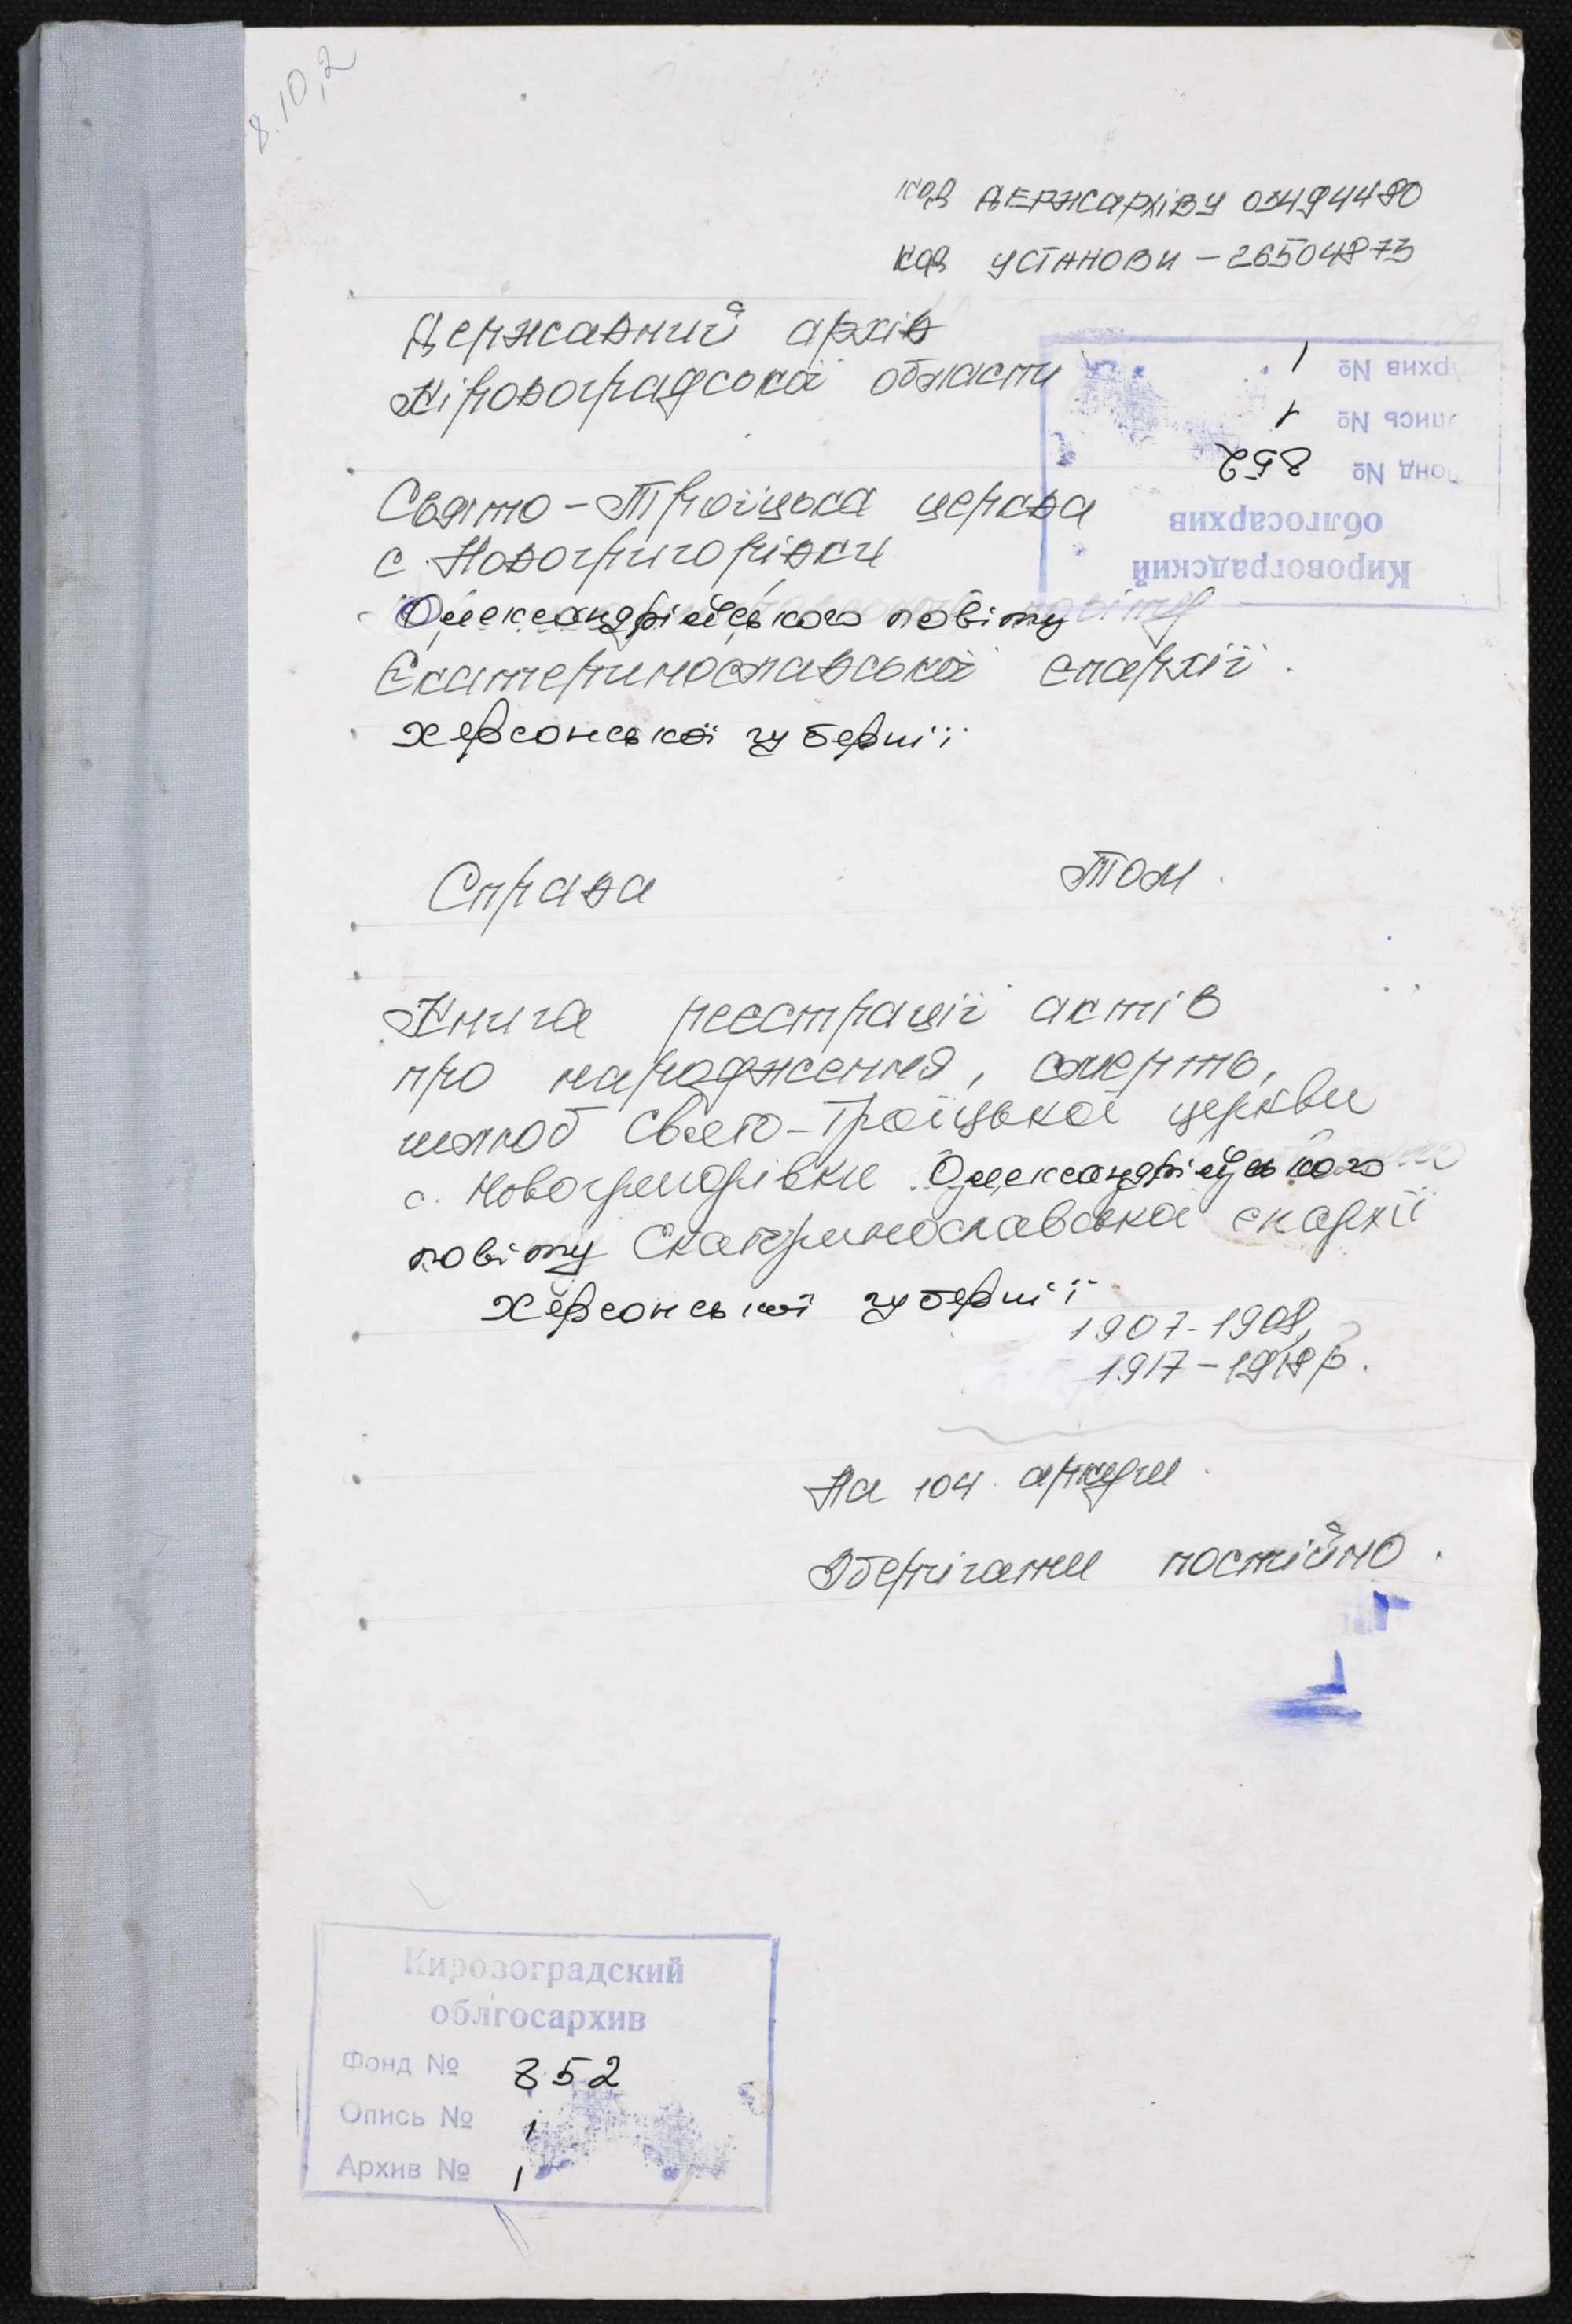 8.10,2
код ДЕРЖархіву 03494480
код УСТАНОВИ - 26504873
Державний архів
Кіровоградської області
Архив № 1
Опись № 1
Фонд № 852
облгосархив
Кировоградский
Свято-Троїцька церква
с. Новогригорівки
Олександрійського повіту
Єкатеринославської єпархії
Херсонської губернії
Справа Том.
Книга реєстрації актів
про народження, смерть,
шлюб Свято-Троїцької церкви
с. Новогригорівки Олександрійського
повіту Єкатеринославської єпархії
Херсонської губернії
1907-1908,
1917-1918 р.
На 104 аркуши
Зберігати постійно.
Кировоградский
облгосархив
Фонд № 852
Опись № 1
Архив № 1